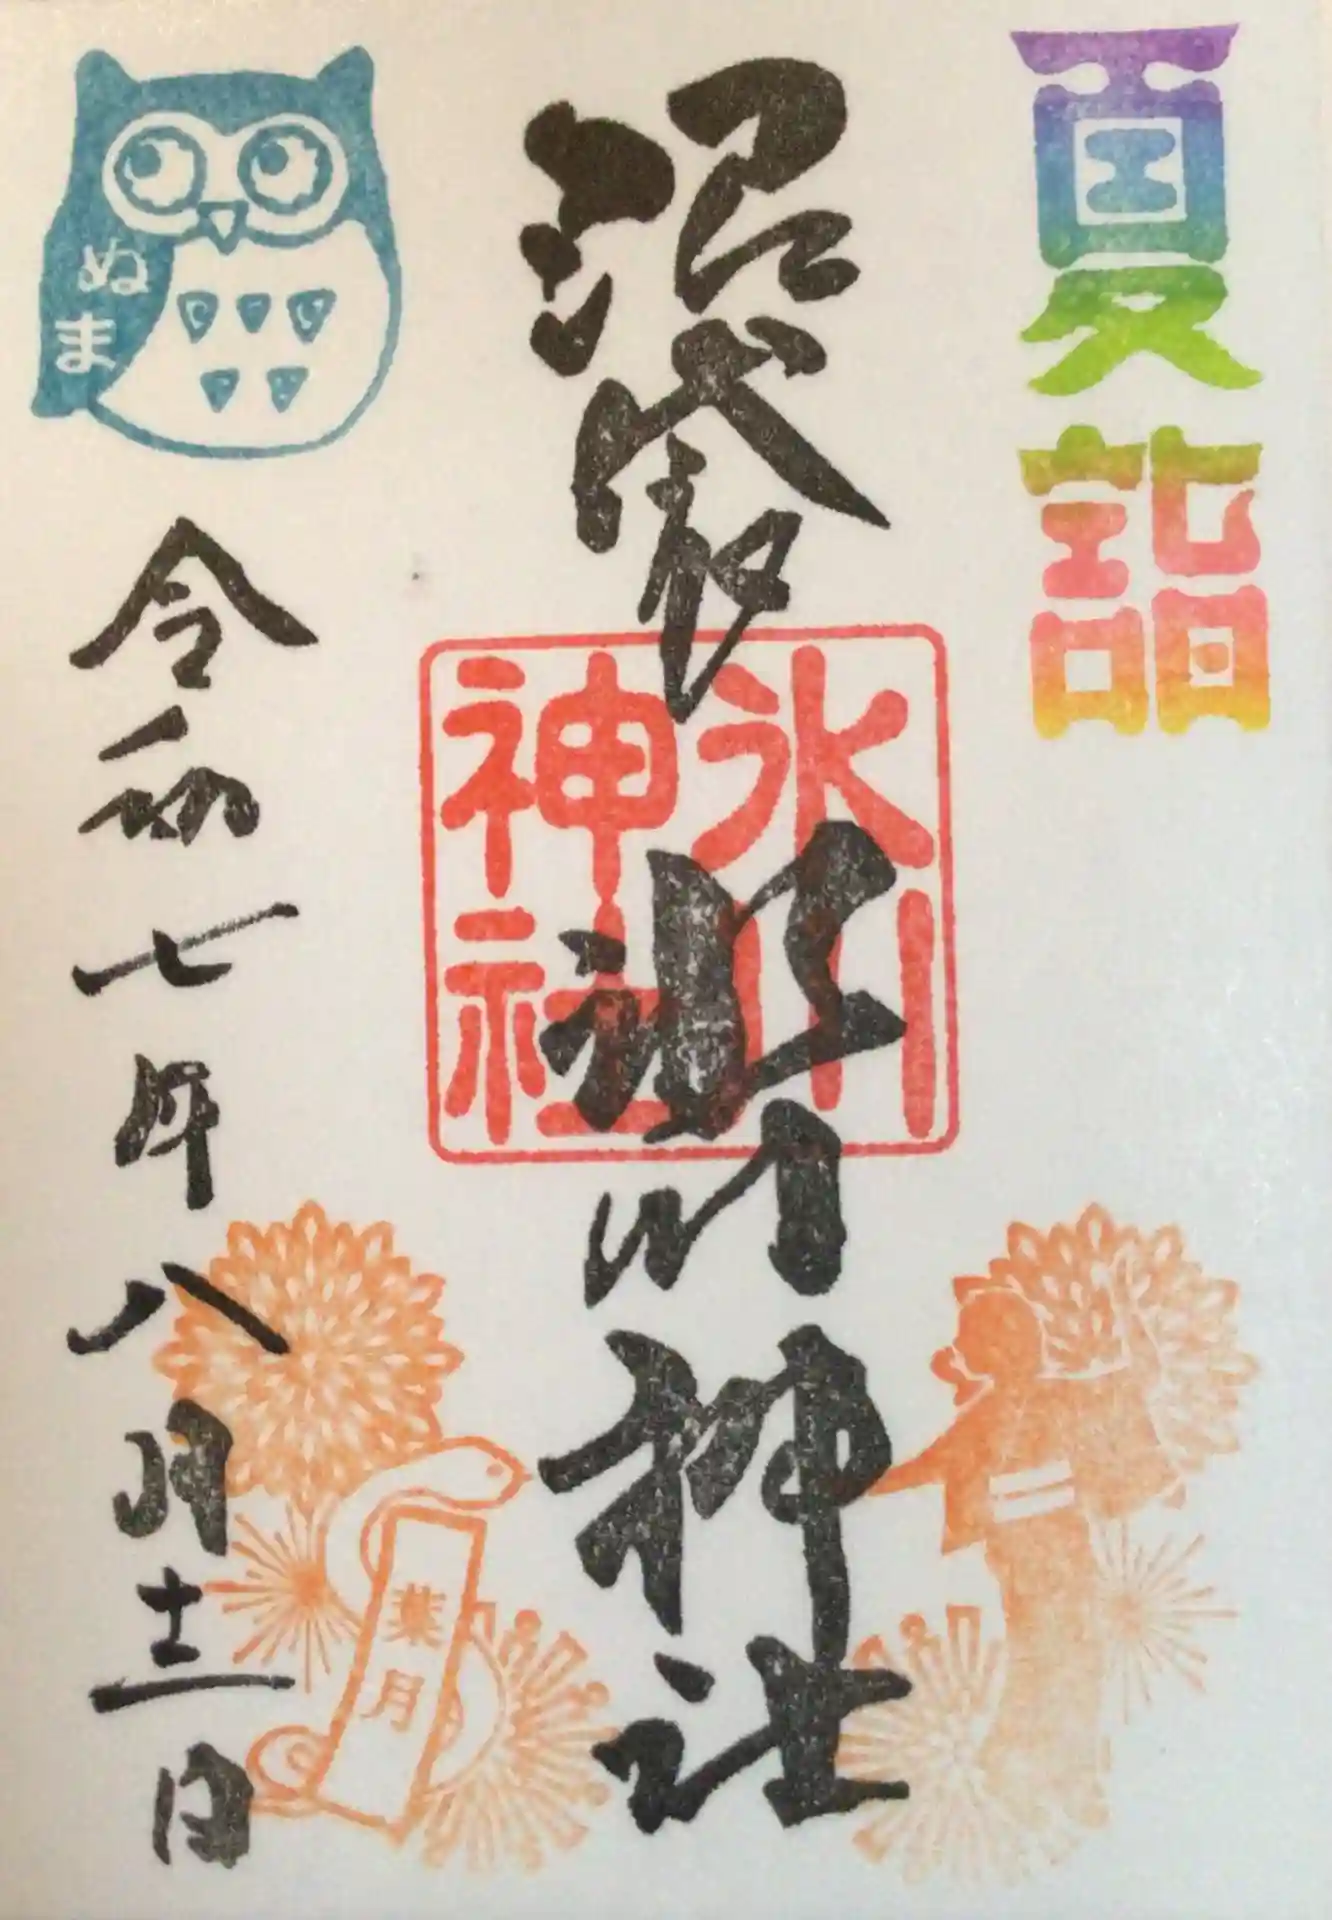 夏詣
沼袋氷川神社
氷川
神社
ぬま
令和七年八月十二日
葉月